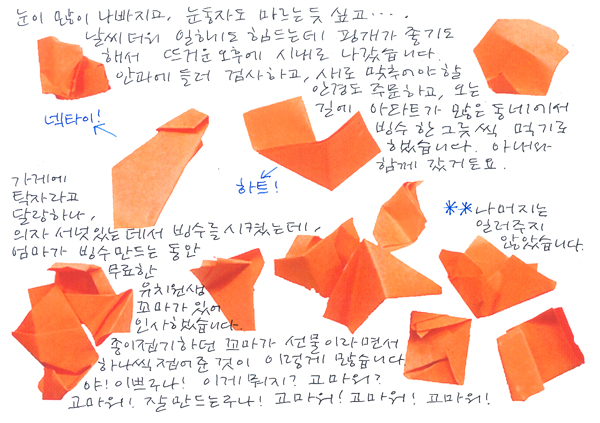 눈이 많이 나빠지고, 눈동자도 마르는듯 싶고….
날씨 더워 일해도 힘드는데 핑개가 좋기도
해서 뜨거운 오후에 시내로 나갔습니다.
안과에 들러 검사하고, 새로 맞추어야 할
안경도 주문하고, 오는
길에 아파트가 많은 동네에서
빙수 한 그릇씩 먹기로
했습니다. 아내와
함께 갔거든요.
넥타이!
하트!
가게에
탁자라고
달랑하나,
의자 서넛 있는 데서 빙수를 시켰는데,
엄마가 빙수 만드는 동안
무료한
유치원생
꼬마가 있어
인사했습니다.
종이접기하던 꼬마가 선물이라면서
하나씩 접어준 것이 이렇게 많습니다
야! 이쁘구나! 이게 뭐지? 고마워?
고마워! 잘 만드는구나! 고마워! 고마워! 고마워!
**나머지는
일러주지
않았습니다.